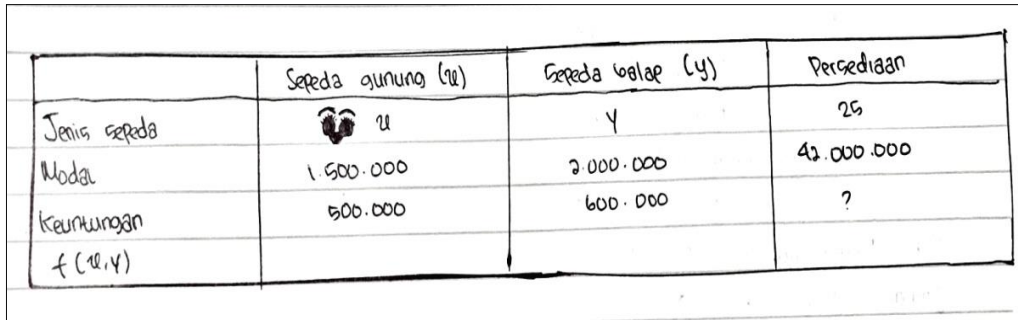 Sepeda gunung (x) Sepeda balap (y) Persediaan
Jenis sepeda x y 25
Modal 1.500.000 2.000.000 42.000.000
Keuntungan 500.000 600.000 ?
f(x,y)